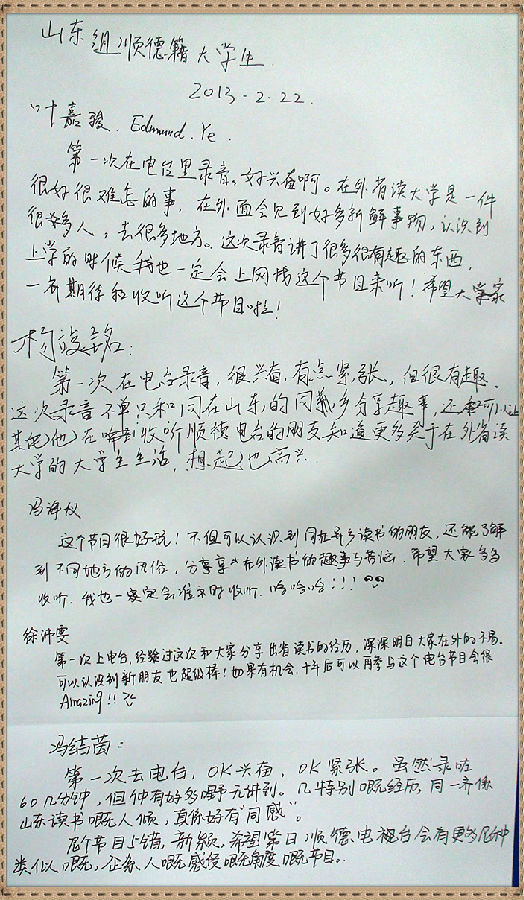 山东组顺德籍大学生
2013-2.22.
叶嘉骏. Edmund.Ye.
第一次在电台里录音。好兴奋啊。在外省读大学是一件
很好很难忘的事，在外面会见到好多新鲜事物，认识到
很多人，去很多地方。这次录音讲了很多很有趣的东西，
上学的时候我也一定会上网找这个节目来听！希望大家
一齐期待和收听这个节目啦！
第一次在电台录音，很兴奋，有点紧张，但很有趣。
这次录音不单只和同在山东的同学分享趣事，还可以让
其他在收听顺德电台的朋友知道更多关于在外省读
大学的大学生生活，想起也高兴.
这个节目很好玩！不但可以认识到同在异乡读书的朋友，还能了解
到不同地方的风俗，分享在外读书的趣事与苦恼。希望大家多多
收听，我也一定会准时收听，哈哈哈！！！
徐沛雯
第一次上电台，经验过这次和大家分享出省读书的经历，深深明白大家在外的不易.
可以认识到新朋友也超值得！如果有机会十年后可以再参与这个电台节目会很
Amazing!!
冯结茵：
第一次去电台，OK兴奋，OK紧张。虽然录咗
60几分钟，但仲有好多嘢冇讲到。几特别嘅经历，同一齐系
山东读书嘅人倾，真系好有"同感"。
呢个节目上错，新颖。希望第日顺德电视台会有更多几种
类似嘅，人嘅感受嘅角度嘅节目。